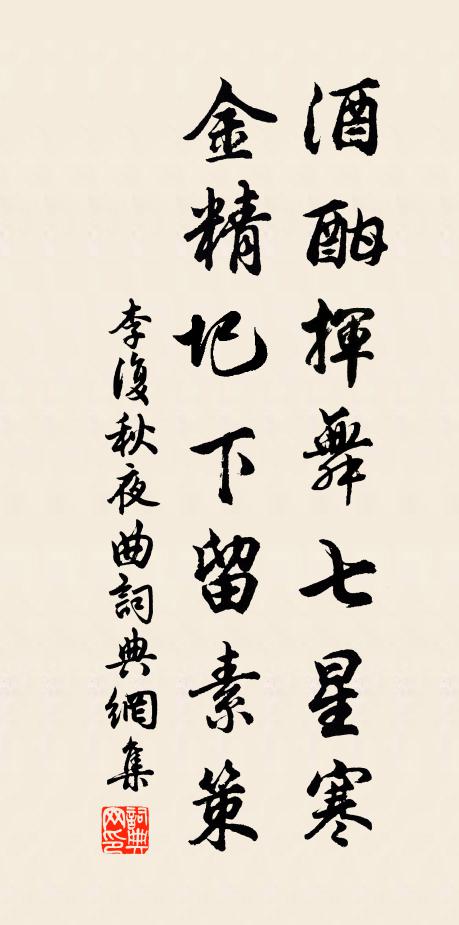 酒酣揮舞七星寒
金精圯下留素策
李復秋夜曲詞典網集
詞典网印